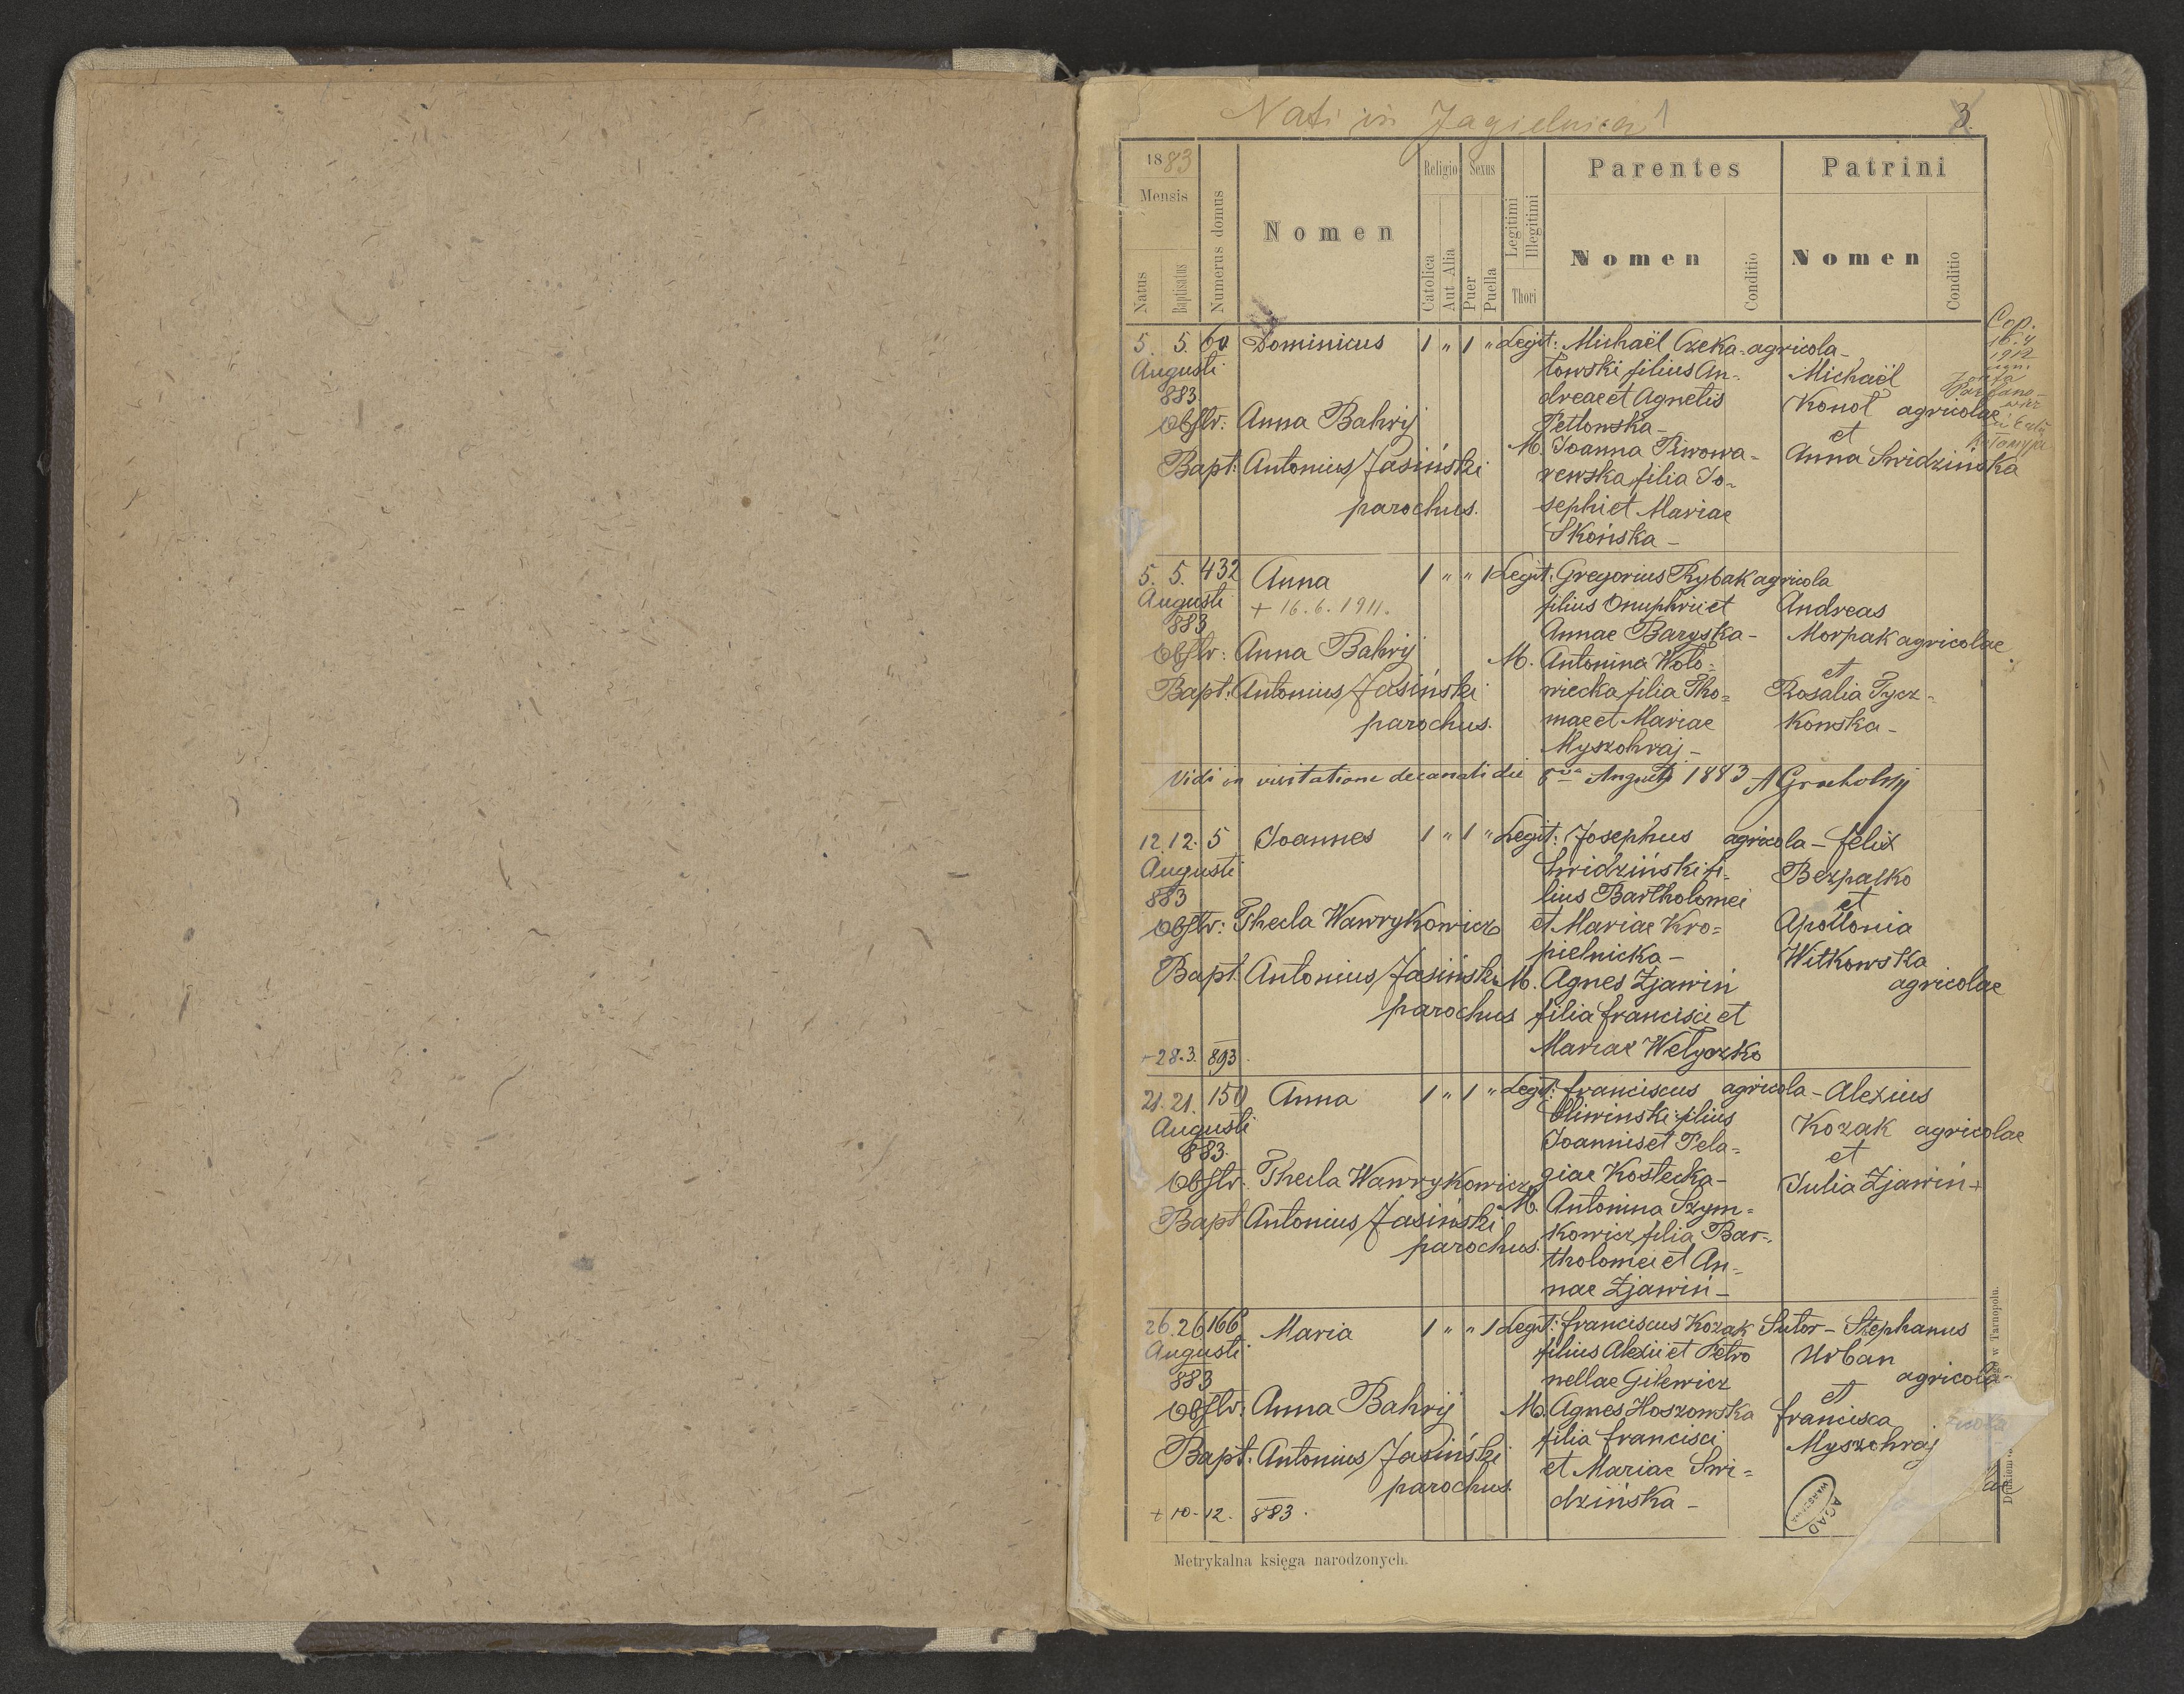 Nati in Jagielnica
3.
1883
Mensis
Natus
Baptisatus
Numerus domus
Nomen
Religio
Catolica
Aut Alia
Sexus
Puer
Puella
Legitimi
Illegitimi
Thori
Parentes
Nomen
Conditio
Patrini
Nomen
Conditio
5. 5. 60 Dominicus 1 " 1 " Legit: Michaël Czeka- agricola-
Augusti
883
towski filius An-
dreae et Agnetis
Petlowska-
M. Joanna Piwowa-
rewska filia Jo-
sephi et Mariae
Skońska-
Michaël
Konot agricolae
et
Anna Swidzińska
Cop.
16.4
1912
Obstr: Anna Bahrij
Bapt: Antonius Jasiński
parochus.
5. 5. 432 Anna 1 " " 1 Legit: Gregorius Rybak agricola
Augusti
883
+ 16. 6. 1911.
filius Onuphrii et
Annae Baryska-
M. Antonina Woło-
wiecka filia Tho-
mae et Mariae
Myszohraj-
Andreas
Morpak agricolae
et
Rosalia Tycz-
kowska-
Obstr: Anna Bahrij
Bapt: Antonius Jasiński
parochus.
Vidi in visitatione decanali die Augusti 1883
12. 12. 5 Joannes 1 " 1 " Legit: Josephus agricola- Felix
Augusti
883
Swidziński fi-
lius Bartholomei
et Mariae Kro-
pielnicka-
M. Agnes Zjawin
filia Francisci et
Mariae Welyczko
Bezpalko
et
Apollonia
Witkowska
agricolae
Obstr: Thecla Wawrykowicz
Bapt. Antonius Jasiński
parochus
28. 3. 893.
21. 21. 150 Anna 1 " 1 " Legit: Franciscus agricola- Alexius
Augusti
883.
Oliwinski filius
Joannis et Pela-
giae Kostecka-
M. Antonina Szym-
kowicz filia Bar-
tholomei et An-
nae Zjawiń-
Kozak agricolae
et
Julia Zjawiń
Obstr. Thecla Wawrykowicz
Bapt Antonius Jasiński
parochus.
26. 26 166 Maria 1 " " 1 Legit: Franciscus Kozak Sutor- Stephanus
Augusti
883
filius Alexii et Petro
nellae Gilewicz
M. Agnes Hoszowska
filia Francisci
et Mariae Swi-
dzińska-
Urban
agricola
et
Francisca
Myszohraj
Obstr: Anna Bahrij
Bapt: Antonius Jasiński
parochus.
+ 10. 12. 883.
AGAD
WARSZAWA
w Tarnopolu.
Metrykalna księga narodzonych.